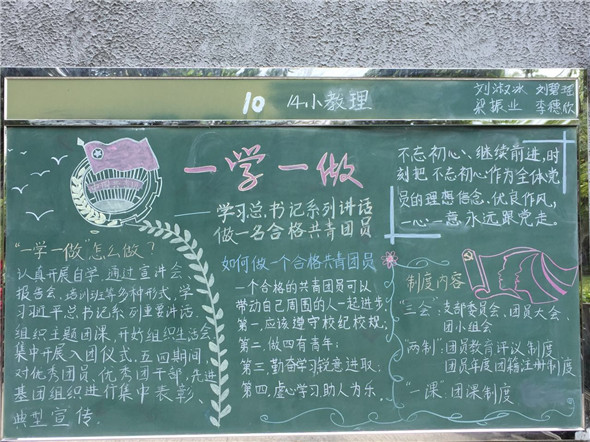 10 14小教理
刘淑冰 刘碧瑶
梁振业 李穗欣
一学一做
——学习总书记系列讲话
做一名合格共青团员
不忘初心、继续前进,时
刻把 不忘初心作为全体党
员的理想信念、优良作风,
一心一意永远跟党走。
"一学一做"怎么做?
认真开展自学,通过宣讲会、
报告会、培训班等多种形式,学
习习近平总书记系列重要讲话,
组织主题团课,开好组织生活会,
集中开展入团仪式,五四期间,
对优秀团员、优秀团干部、先进
基团组织进行集中表彰、
典型宣传.
如何做一个合格共青团员
一个合格的共青团员可以
带动自己周围的人一起进步:
第一,应该遵守校纪校规;
第二,做四有青年;
第三,勤奋学习,锐意进取;
第四,虚心学习,助人为乐.
制度内容
"三会":支部委员会、团员大会、
团小组会
"两制":团员教育评议制度
团员年度团籍注册制度
"一课":团课制度